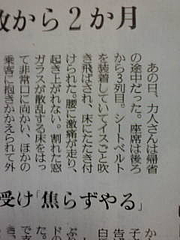 故から２か月
あの日、力人さんは帰省
の途中だった。座席は後ろ
から３列目。シートベルト
を装着していてイスごと吹
き飛ばされ、床にたたき付
けられた。腰に激痛が走り、
起き上がれない。割れた窓
ガラスが散乱する床をはっ
て非常口に向かい、ほかの
乗客に抱きかかえられて外
受け「焦らずやる」